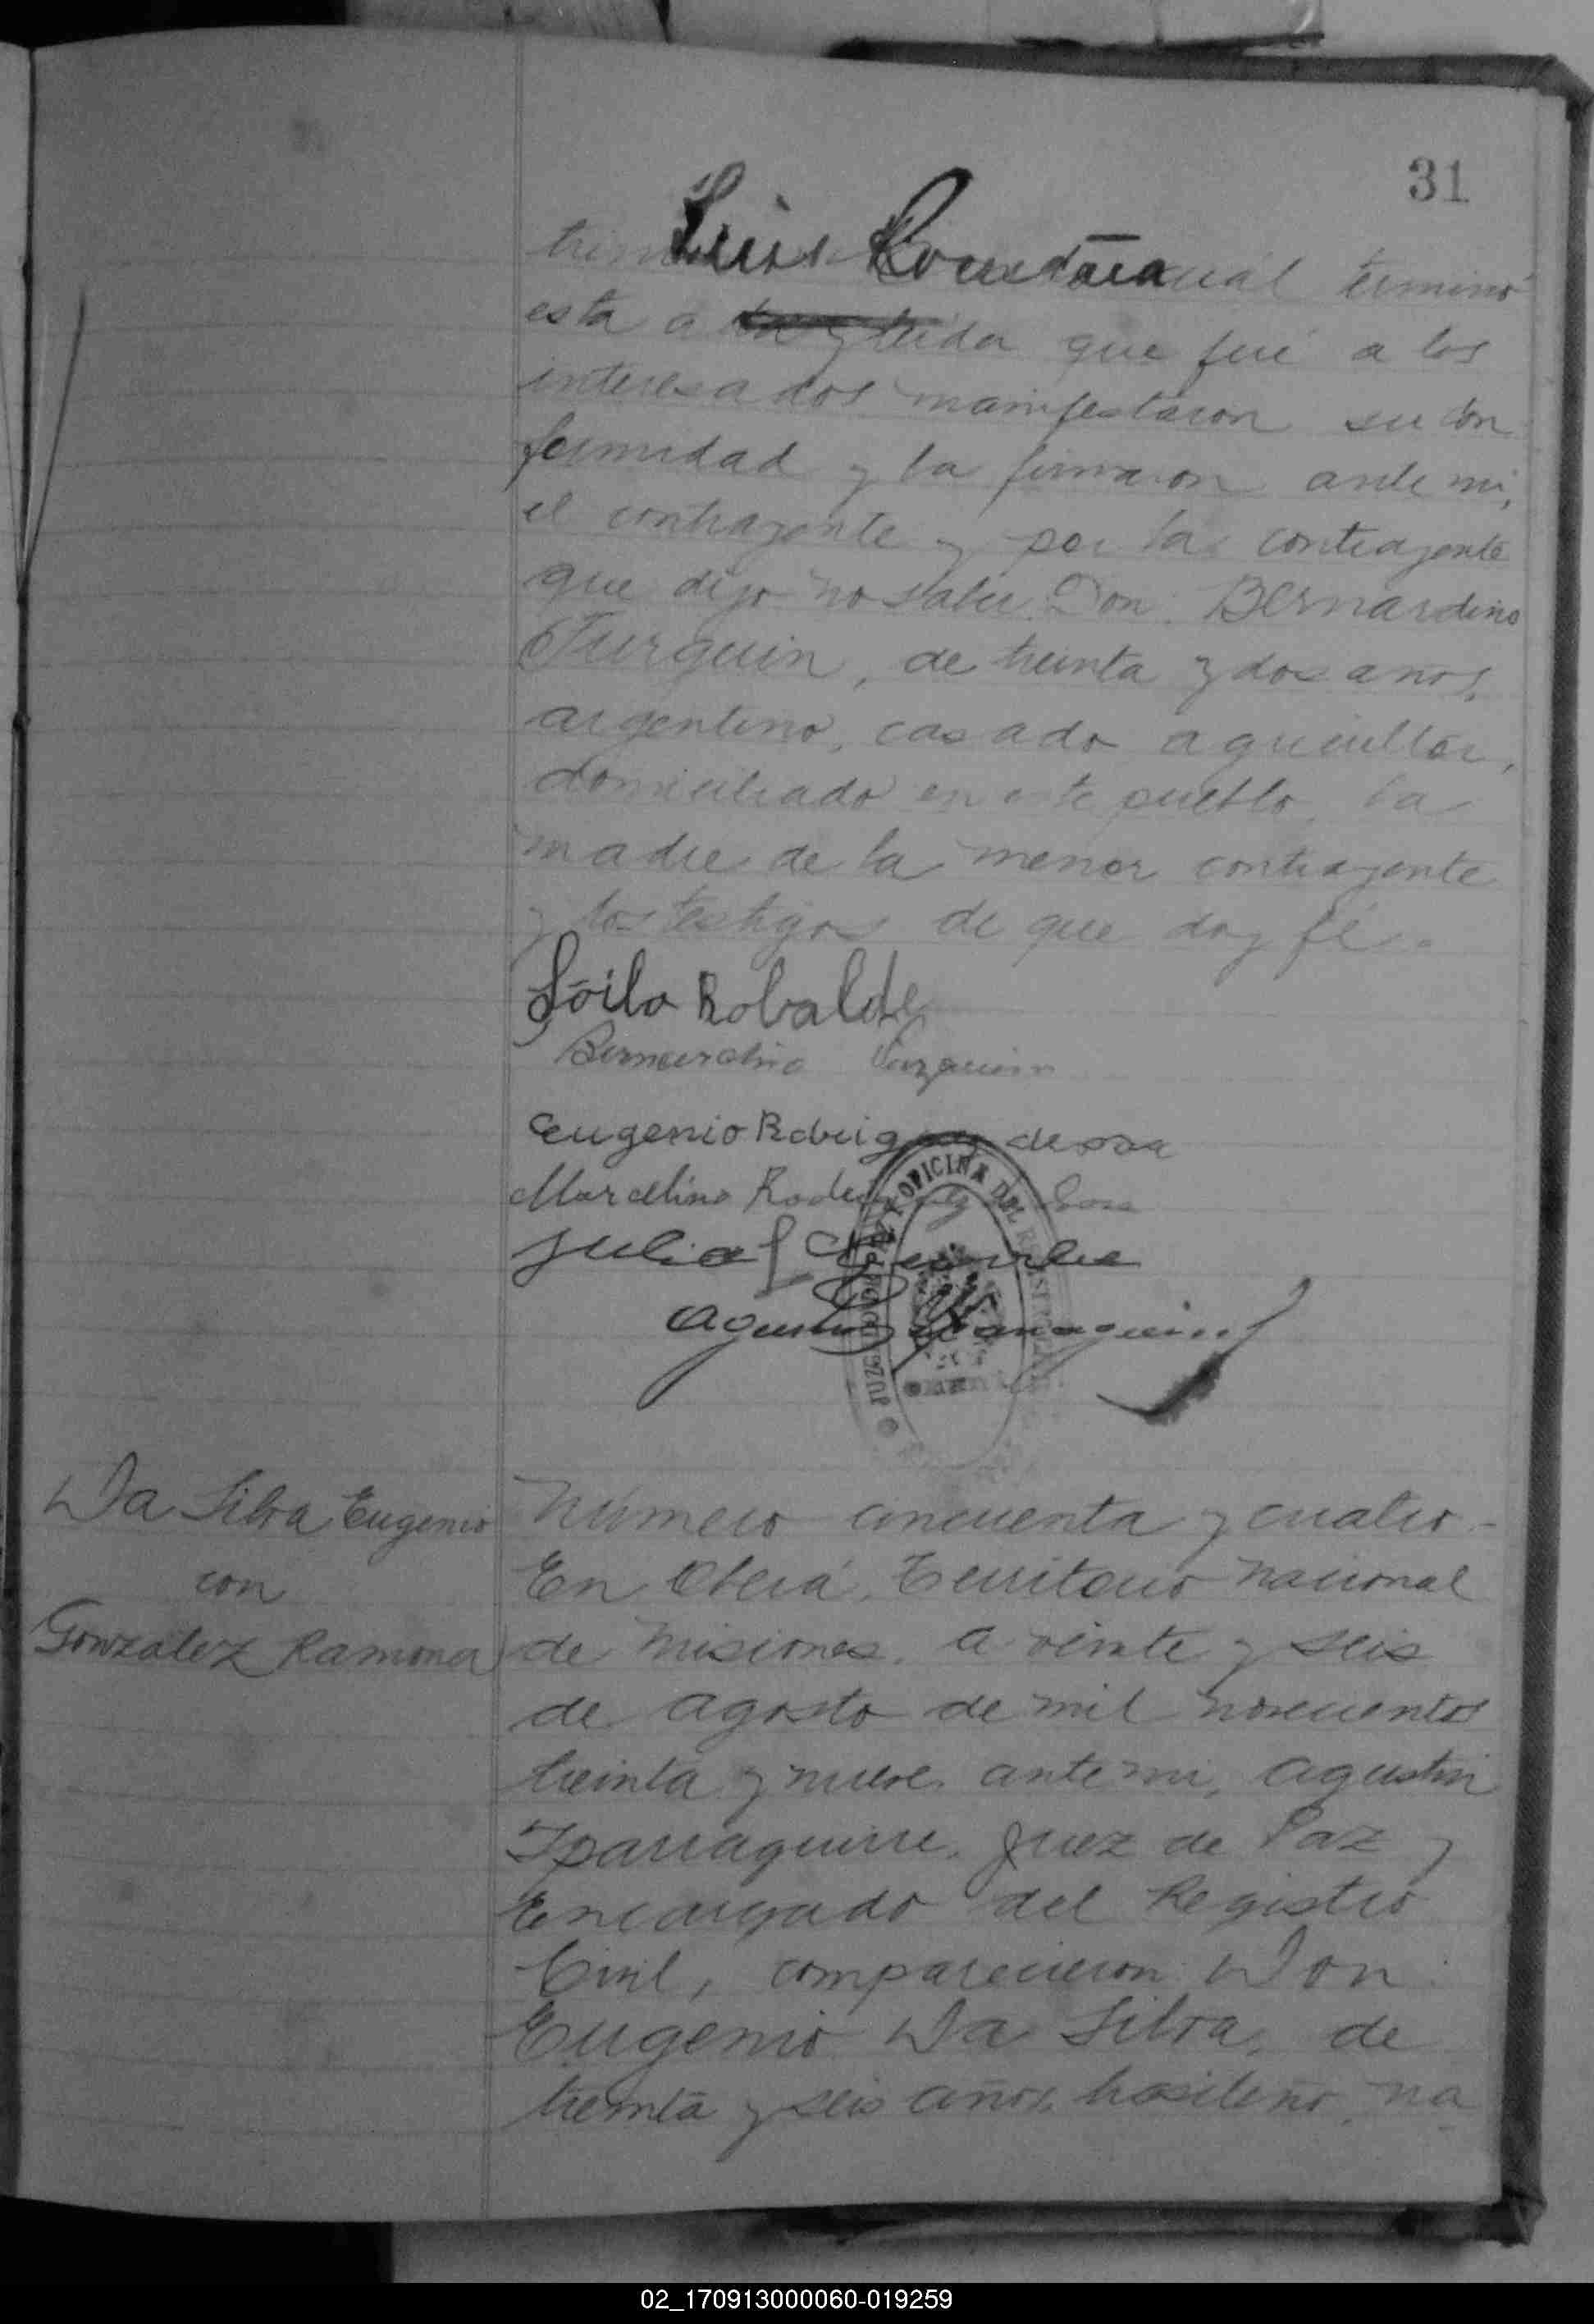 31
Luis Roustan
cual terminó
esta a y leida que fué a los
interesados manifestaron su con
formidad y la firmaron ante mi,
el contrayente y por la contrayente
que dijo no saber Don Bernardino
Turquin, de treinta y dos años,
argentino, casado agricultor,
domiciliado en este pueblo, la
madre de la menor contrayente
y los testigos de que doy fé.
Soilo Robalde
Bernardino
Eugenio
Marcelino
OFICINA DEL
JUZGADO DE PAZ
Da Silva Eugenio
con
Gonzalez Ramona
Número cincuenta y cuatro -
En Oberá, Territorio nacional
de Misiones, a veinte y seis
de agosto de mil novecientos
treinta y nueve ante mi, Agustin
Yparraguirre, Juez de Paz y
Encargado del Registro
Civil, comparecieron Don
Eugenio Da Silva, de
treinta y seis años, brasileño, na
02_170913000060-019259